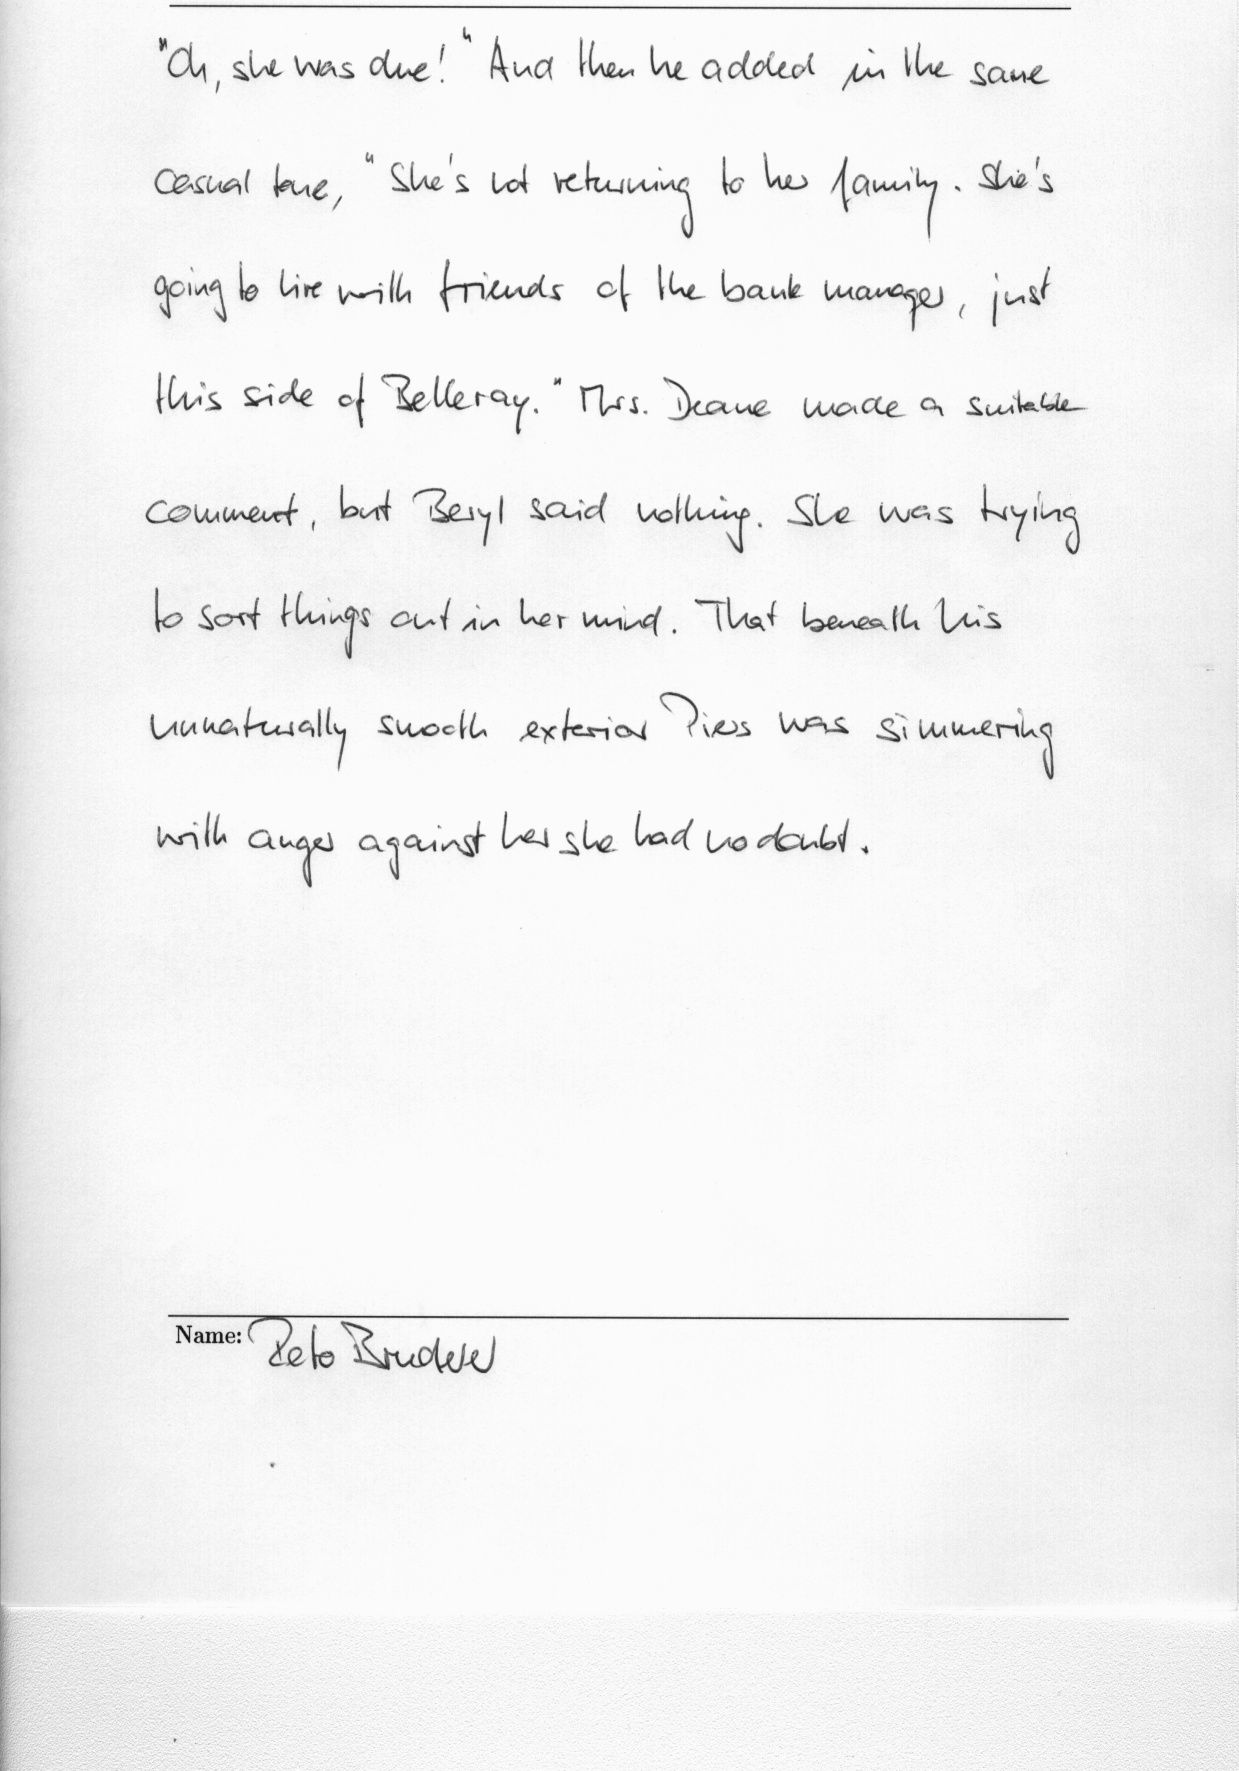 "Oh, she was due!" And then he added in the same
casual tone, "She's not returning to her family. She's
going to live with friends of the bank manager, just
this side of Belleray." Mrs. Deane made a suitable
comment, but Beryl said nothing. She was trying
to sort things out in her mind. That beneath his
unnaturally smooth exterior Piers was simmering
with anger against her she had no doubt.
Name: Reto Bruderer